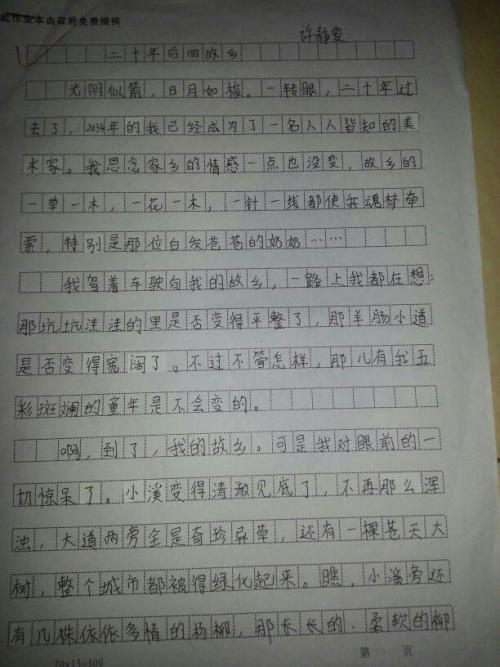 作业本由政府免费提供
许静雯
二十年后回故乡
光阴似箭，日月如梭。一转眼，二十年过
去了，2034年的我已经成为了一名人人皆知的美
术家。我思念家乡的情感一点也没变，故乡的
一草一木，一花一木，一针一线都使我魂梦牵
萦，特别是那位白发苍苍的奶奶……
我驾着车驶向我的故乡，一路上我都在想：
那坑坑洼洼的里是否变得平整了，那羊肠小道
是否变得宽阔了。不过不管怎样，那儿有我五
彩斑斓的童年是不会变的。
啊，到了，我的故乡。可是我对眼前的一
切惊呆了。小溪变得清澈见底了，不再那么浑
浊，大道两旁全是奇珍异草，还有一棵苍天大
树，整个城市都被得绿化起来。瞧，小溪旁还
有几株依依多情的杨柳，那长长的、柔软的柳
20×15=300 第 页